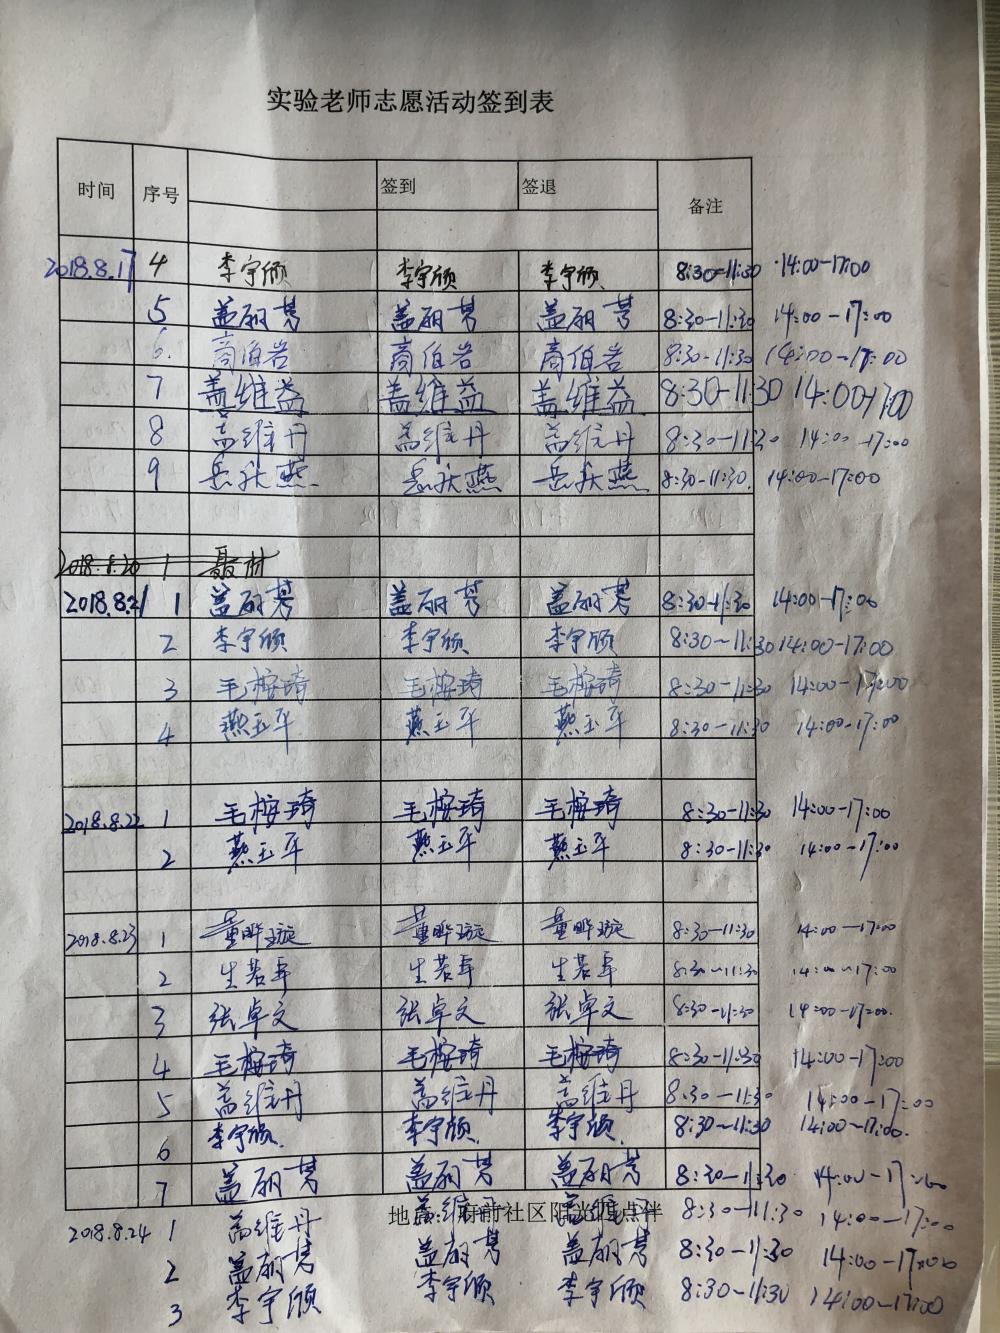 实验老师志愿活动签到表
时间 序号 签到 签退 备注
2018.8.17 4 李宇颀 李宇颀 李宇颀 8:30-11:30 14:00-17:00
5 盖丽芳 盖丽芳 盖丽芳 8:30-11:30 14:00-17:00
6. 商伯岩 商伯岩 商伯岩 8:30-11:30 14:00-17:00
7 盖维益 盖维益 盖维益 8:30-11:30 14:00-17:00
8 盖维丹 盖维丹 盖维丹 8:30-11:30 14:00-17:00
9 岳秋燕 岳秋燕 岳秋燕 8:30-11:30. 14:00-17:00
2018.8.20 1
2018.8.21 1 盖丽芳 盖丽芳 盖丽芳 8:30-11:30 14:00-17:00
2 李宇颀 李宇颀 李宇颀 8:30-11:30 14:00-17:00
3 毛梓琦 毛梓琦 毛梓琦 8:30-11:30 14:00-17:00
4 燕玉军 燕玉军 燕玉军 8:30-11:30 14:00-17:00
2018.8.22 1 毛梓琦 毛梓琦 毛梓琦 8:30-11:30 14:00-17:00
2 燕玉军 燕玉军 燕玉军 8:30-11:30 14:00-17:00
2018.8.23 1 董晔璇 董晔璇 董晔璇 8:30-11:30 14:00-17:00
2 生若卓 生若卓 生若卓 8:30-11:30 14:00-17:00
3 张卓文 张卓文 张卓文 8:30-11:30 14:00-17:00.
4 毛梓琦 毛梓琦 毛梓琦 8:30-11:30 14:00-17:00
5 盖维丹 盖维丹 盖维丹 8:30-11:30 14:00-17:00
6 李宇颀. 李宇颀. 李宇颀. 8:30-11:30 14:00-17:00.
7 盖丽芳 盖丽芳 盖丽芳 8:30-11:30 14:00-17:00
地点：府前社区阳光四点伴
2018.8.24 1 盖维丹 盖维丹 盖维丹 8:30-11:30 14:00-17:00
2 盖丽芳 盖丽芳 盖丽芳 8:30-11:30 14:00-17:00
3 李宇颀 李宇颀 李宇颀 8:30-11:30 14:00-17:00